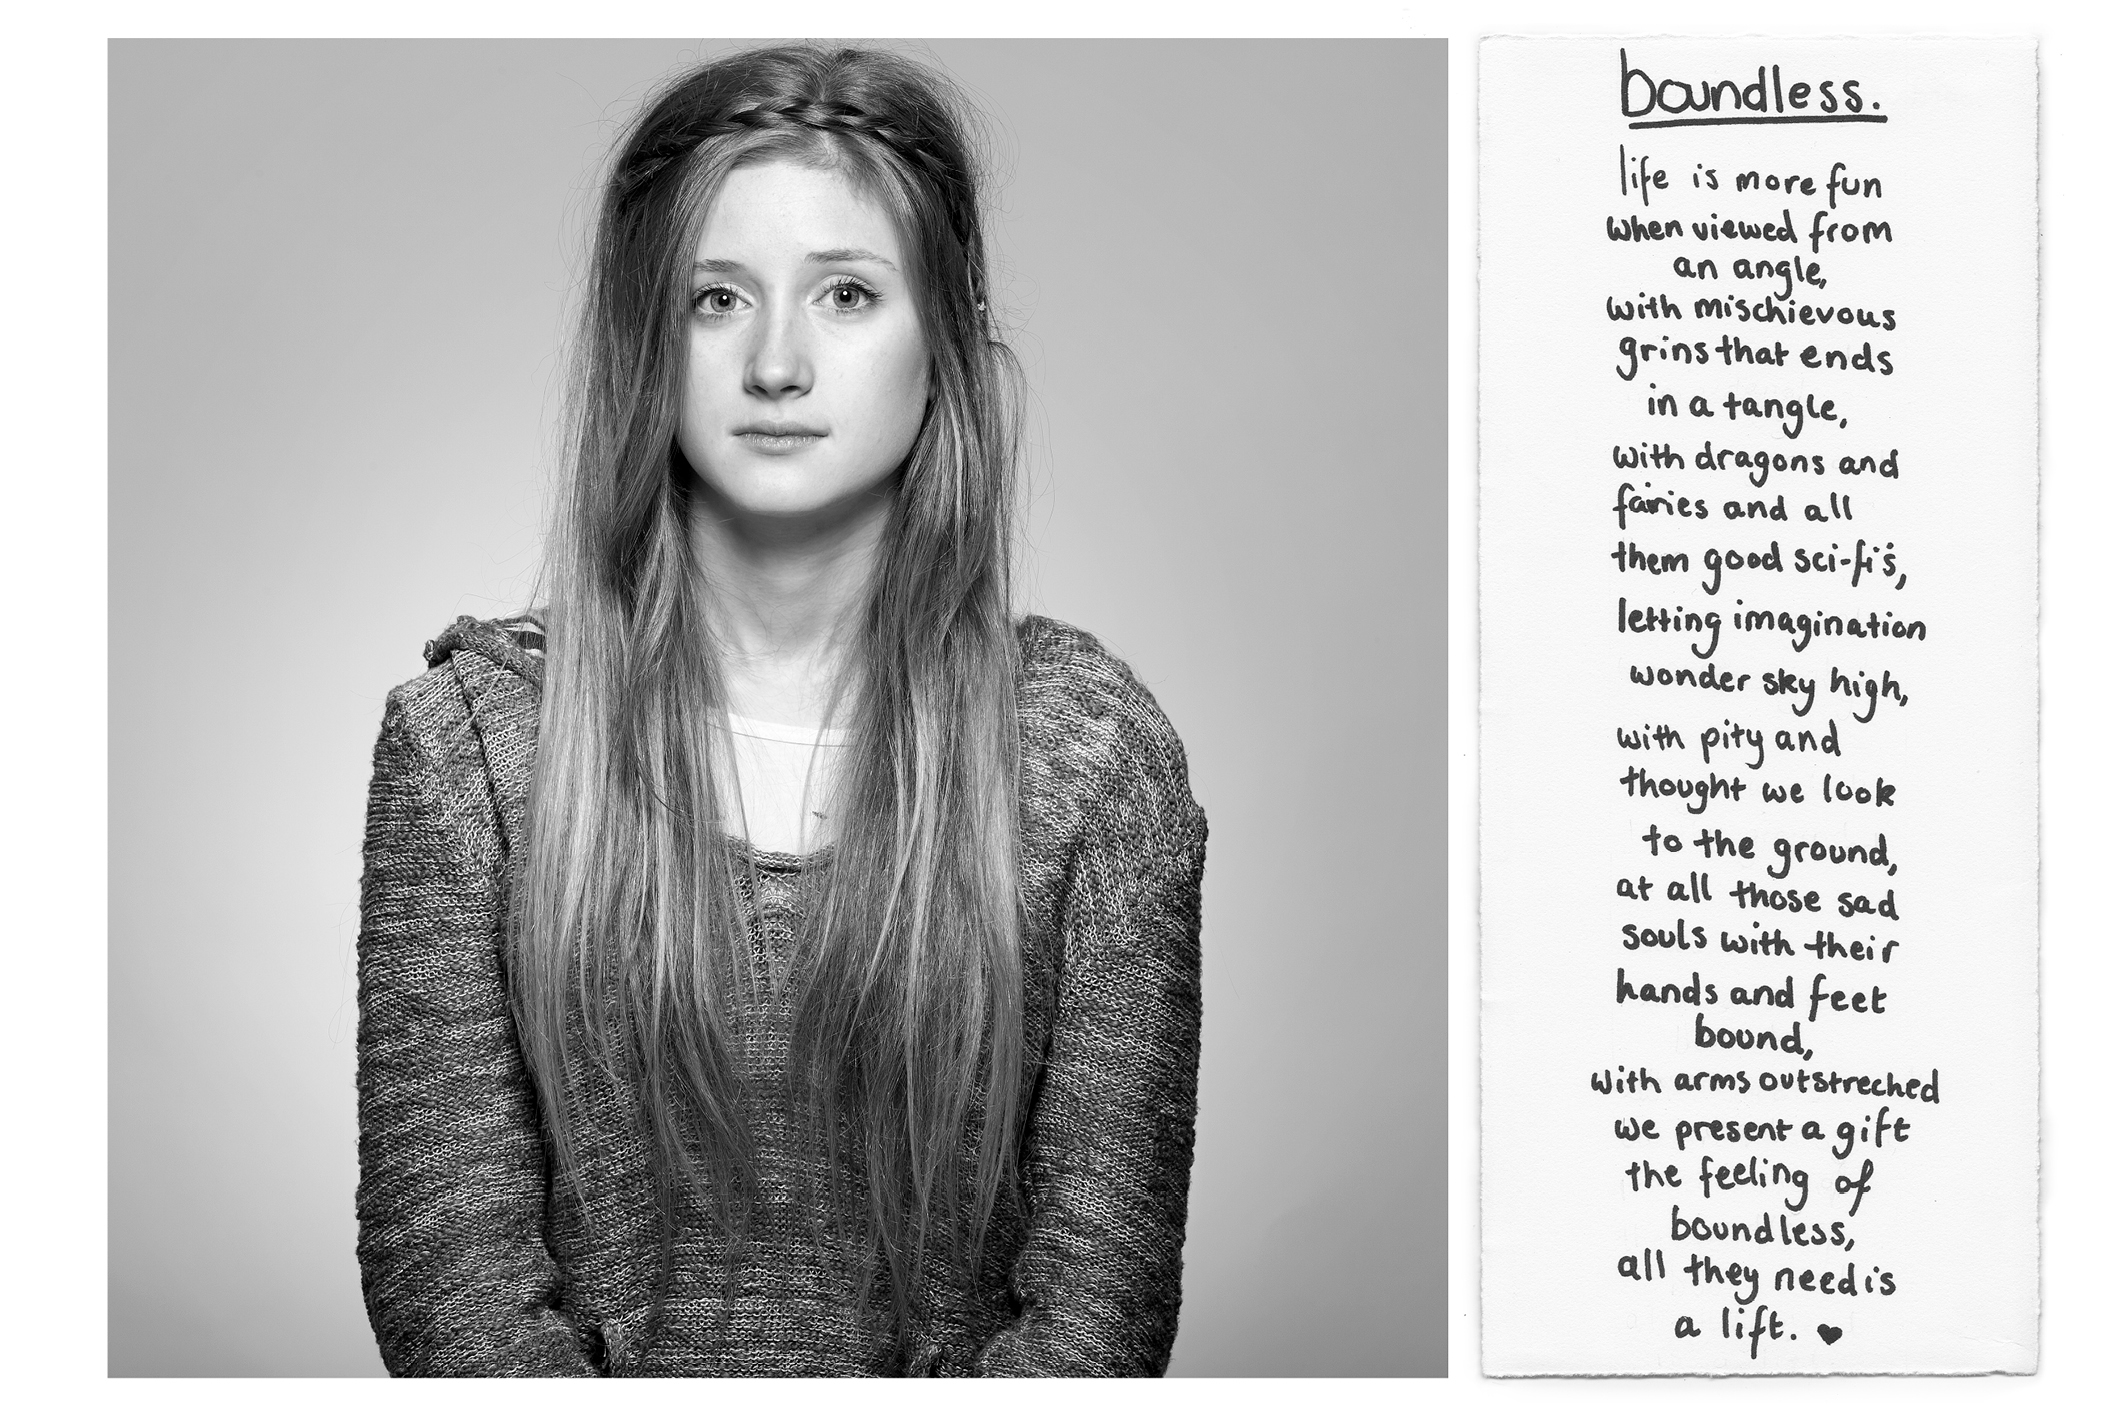 boundless.
life is more fun
when viewed from
an angle,
with mischievous
grins that ends
in a tangle,
with dragons and
fairies and all
them good sci-fi's,
letting imagination
wonder sky high,
with pity and
thought we look
to the ground,
at all those sad
souls with their
hands and feet
bound,
with arms outstreched
we present a gift
the feeling of
boundless,
all they need is
a lift. ♥